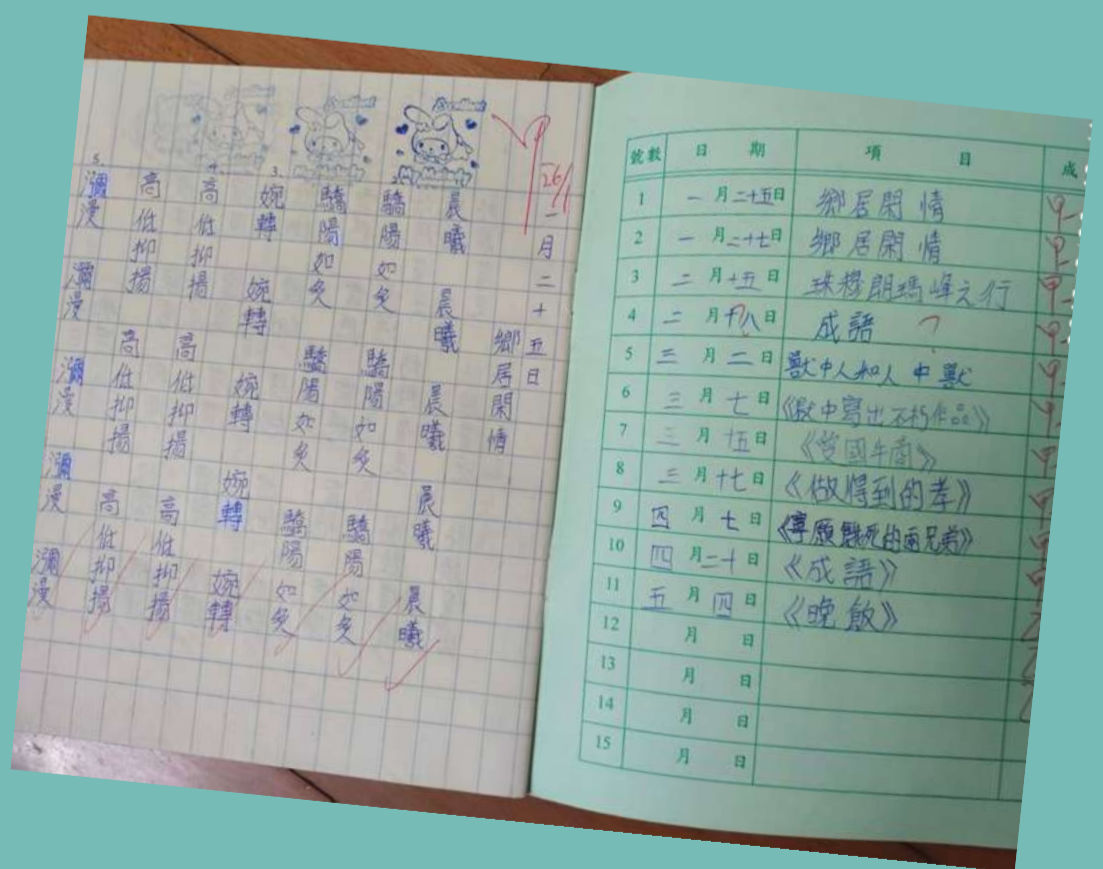 26/1
一月二十五日
鄉居閑情
晨曦 晨曦 晨曦 晨曦 晨曦
2. 驕陽如炙 驕陽如炙 驕陽如炙
驕陽如炙 驕陽如炙 驕陽如炙
3. 婉轉 婉轉 婉轉 婉轉 婉轉
4. 高低抑揚 高低抑揚 高低抑揚
高低抑揚 高低抑揚 高低抑揚
5. 瀰漫 瀰漫 瀰漫 瀰漫 瀰漫
號數 日期 項目 成
1 一月二十五日 鄉居閑情
2 一月二十七日 鄉居閑情
3 二月十五日 珠穆朗瑪峰之行
4 二月十八日 成語
5 三月二日 獸中人和人中獸
6 三月七日 《獄中寫出不朽作品》
7 三月十五日
8 三月十七日 《做得到的孝》
9 四月七日 《寧願餓死的兩兄弟》
10 四月二十日 《成語》
11 五月四日 《晚飯》
12 月 日
13 月 日
14 月 日
15 月 日